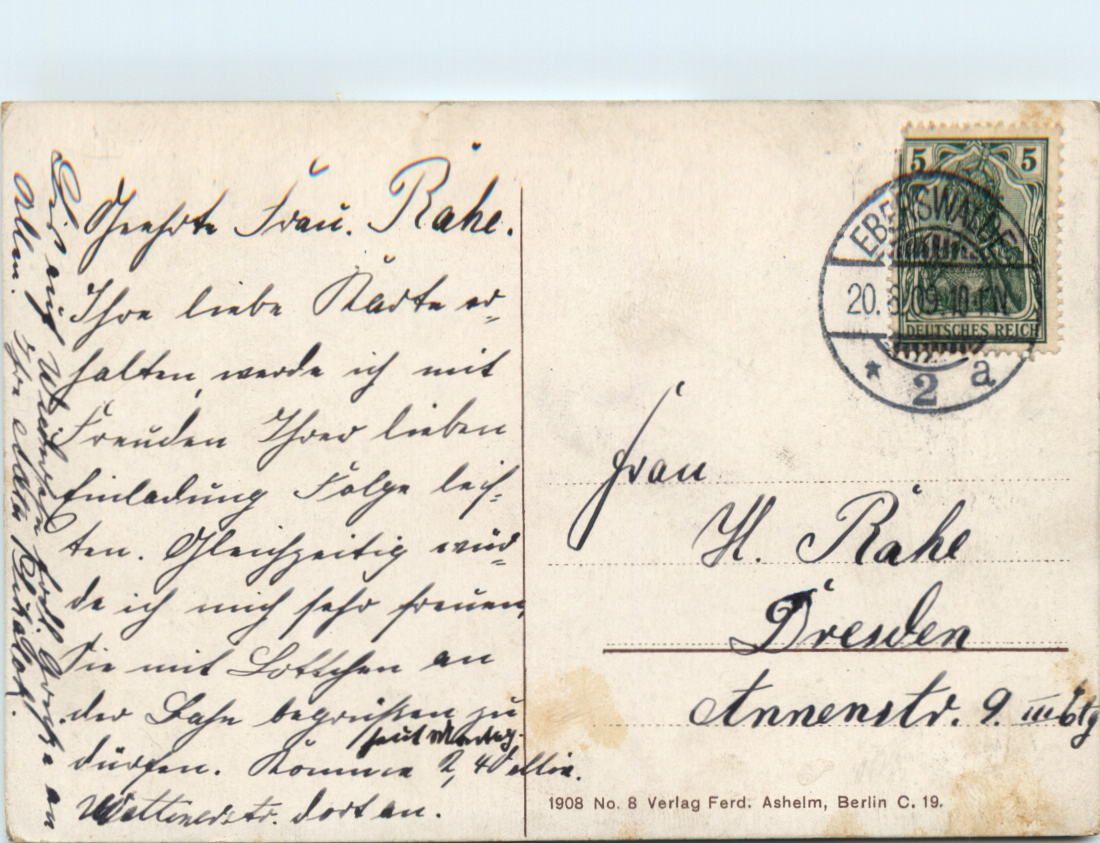 Geehrte Frau. Rahe.
Ihre liebe Karte er-
halten, werde ich mit
Freuden Ihrer lieben
Einladung Folge leis-
ten. Gleichzeitig wür-
de ich mich sehr freuen,
Sie mit Lottchen an
der Bahn begrüßen zu
dürfen. Komme 2,40
Wettinerstr. dort an.
auf Wiedersehn herzl. Grüße an
Allen. Ihre
5 5
DEUTSCHES REICH
EBERSWALDE
20.8.09.10-11N.
* 2 a
Frau
H. Rahe
Dresden
Annenstr. 9. III Etg
1908 No. 8 Verlag Ferd. Ashelm, Berlin C. 19.